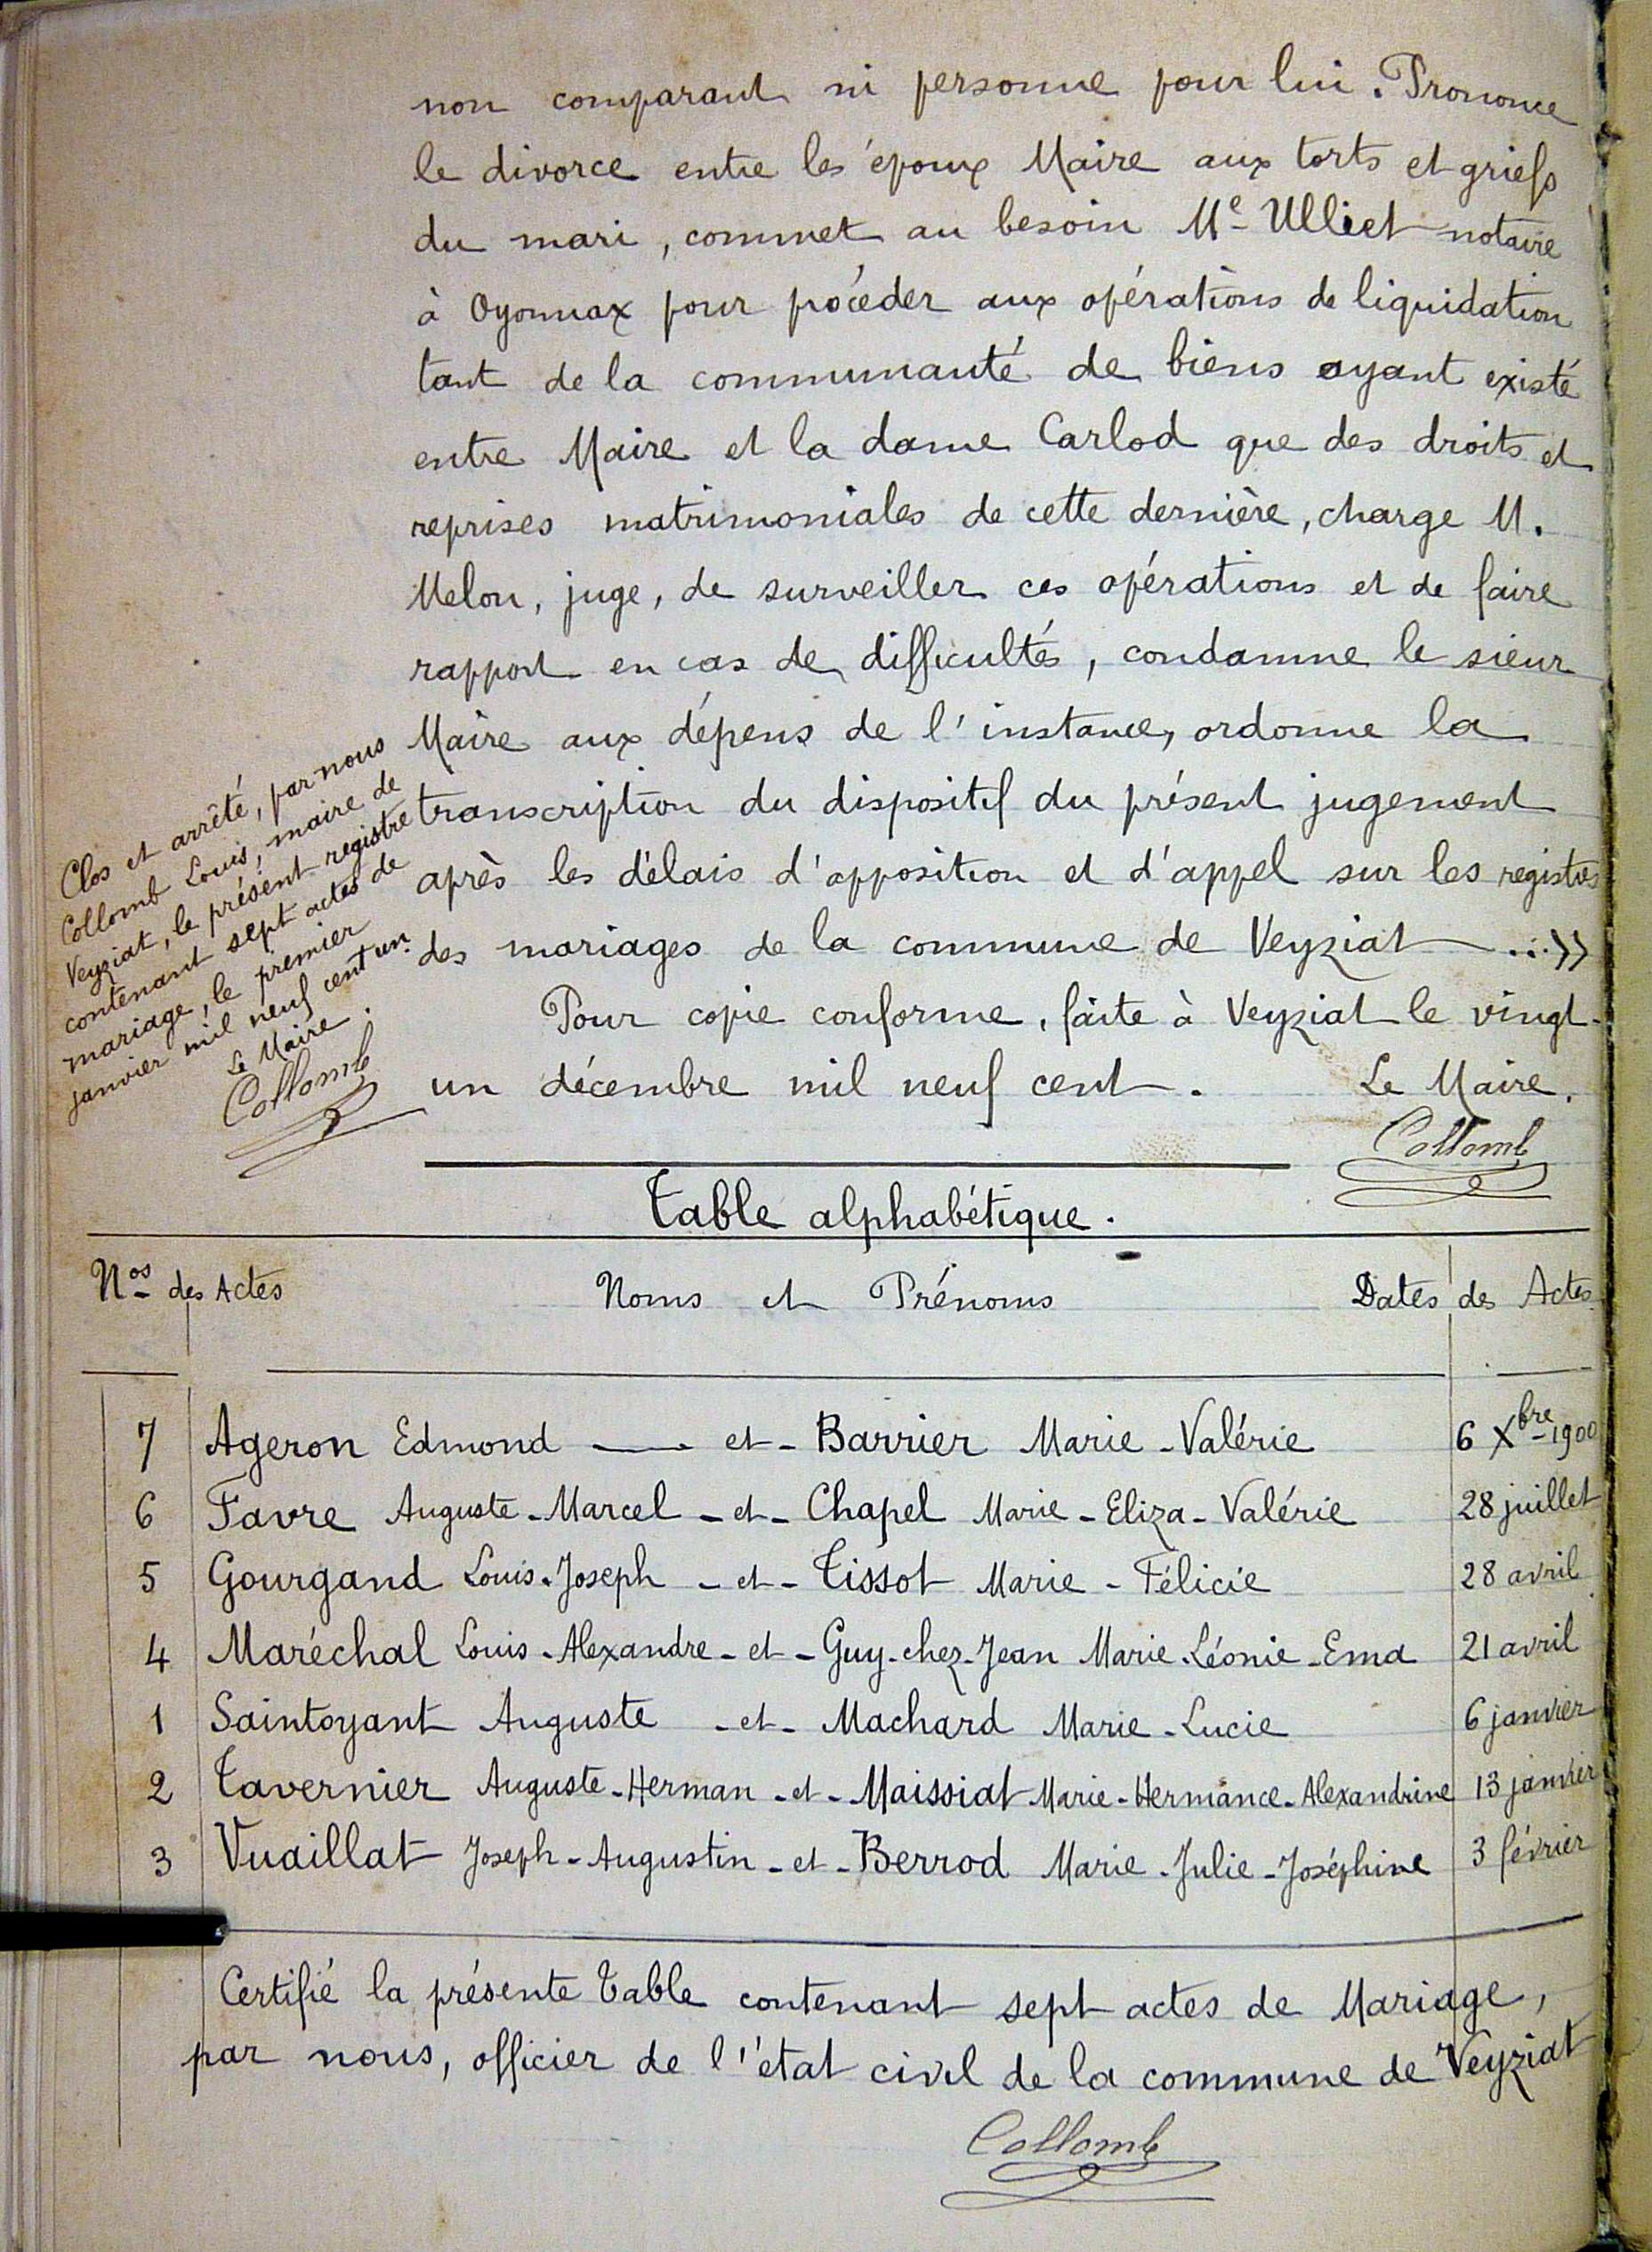 non comparant ni personne pour lui. Prononce
le divorce entre les époux Maire aux torts et griefs
du mari, commet au besoin Mᵉ Ulliet notaire
à Oyonnax pour procéder aux opérations de liquidation
tant de la communauté de biens ayant existé
entre Maire et la dame Carlod que des droits et
reprises matrimoniales de cette dernière, charge M.
Melon, juge, de surveiller ces opérations et de faire
rapport en cas de difficultés, condamne le sieur
Maire aux dépens de l'instance, ordonne la
transcription du dispositif du présent jugement
après les délais d'opposition et d'appel sur les registres
des mariages de la commune de Veyziat ...»
Pour copie conforme, faite à Veyziat le vingt-
un décembre mil neuf cent. Le Maire.
Collomb
Clos et arrêté, par nous
Collomb Louis, maire de
Veyziat, le présent registre
contenant sept actes de
mariage, le premier
janvier mil neuf cent un.
Le Maire.
Collomb
Table alphabétique.
Nos des Actes Noms et Prénoms Dates des Actes
7 Ageron Edmond — et - Barrier Marie-Valérie 6 Xbre 1900
6 Favre Auguste-Marcel - et - Chapel Marie-Eliza-Valérie 28 juillet
5 Gourgand Louis-Joseph - et - Tissot Marie-Félicie 28 avril
4 Maréchal Louis-Alexandre - et - Guy-chez-Jean Marie-Léonie-Ema 21 avril
1 Saintoyant Auguste - et - Machard Marie-Lucie 6 janvier
2 Tavernier Auguste-Herman - et - Maissiat Marie-Hermance-Alexandrine 13 janvier
3 Vuaillat Joseph-Augustin - et - Berrod Marie-Julie-Joséphine 3 février
Certifié la présente Table contenant sept actes de Mariage,
par nous, officier de l'état civil de la commune de Veyziat
Collomb